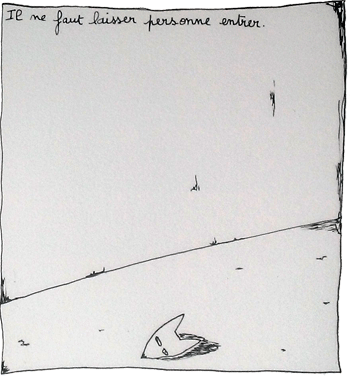 Il ne faut laisser personne entrer.